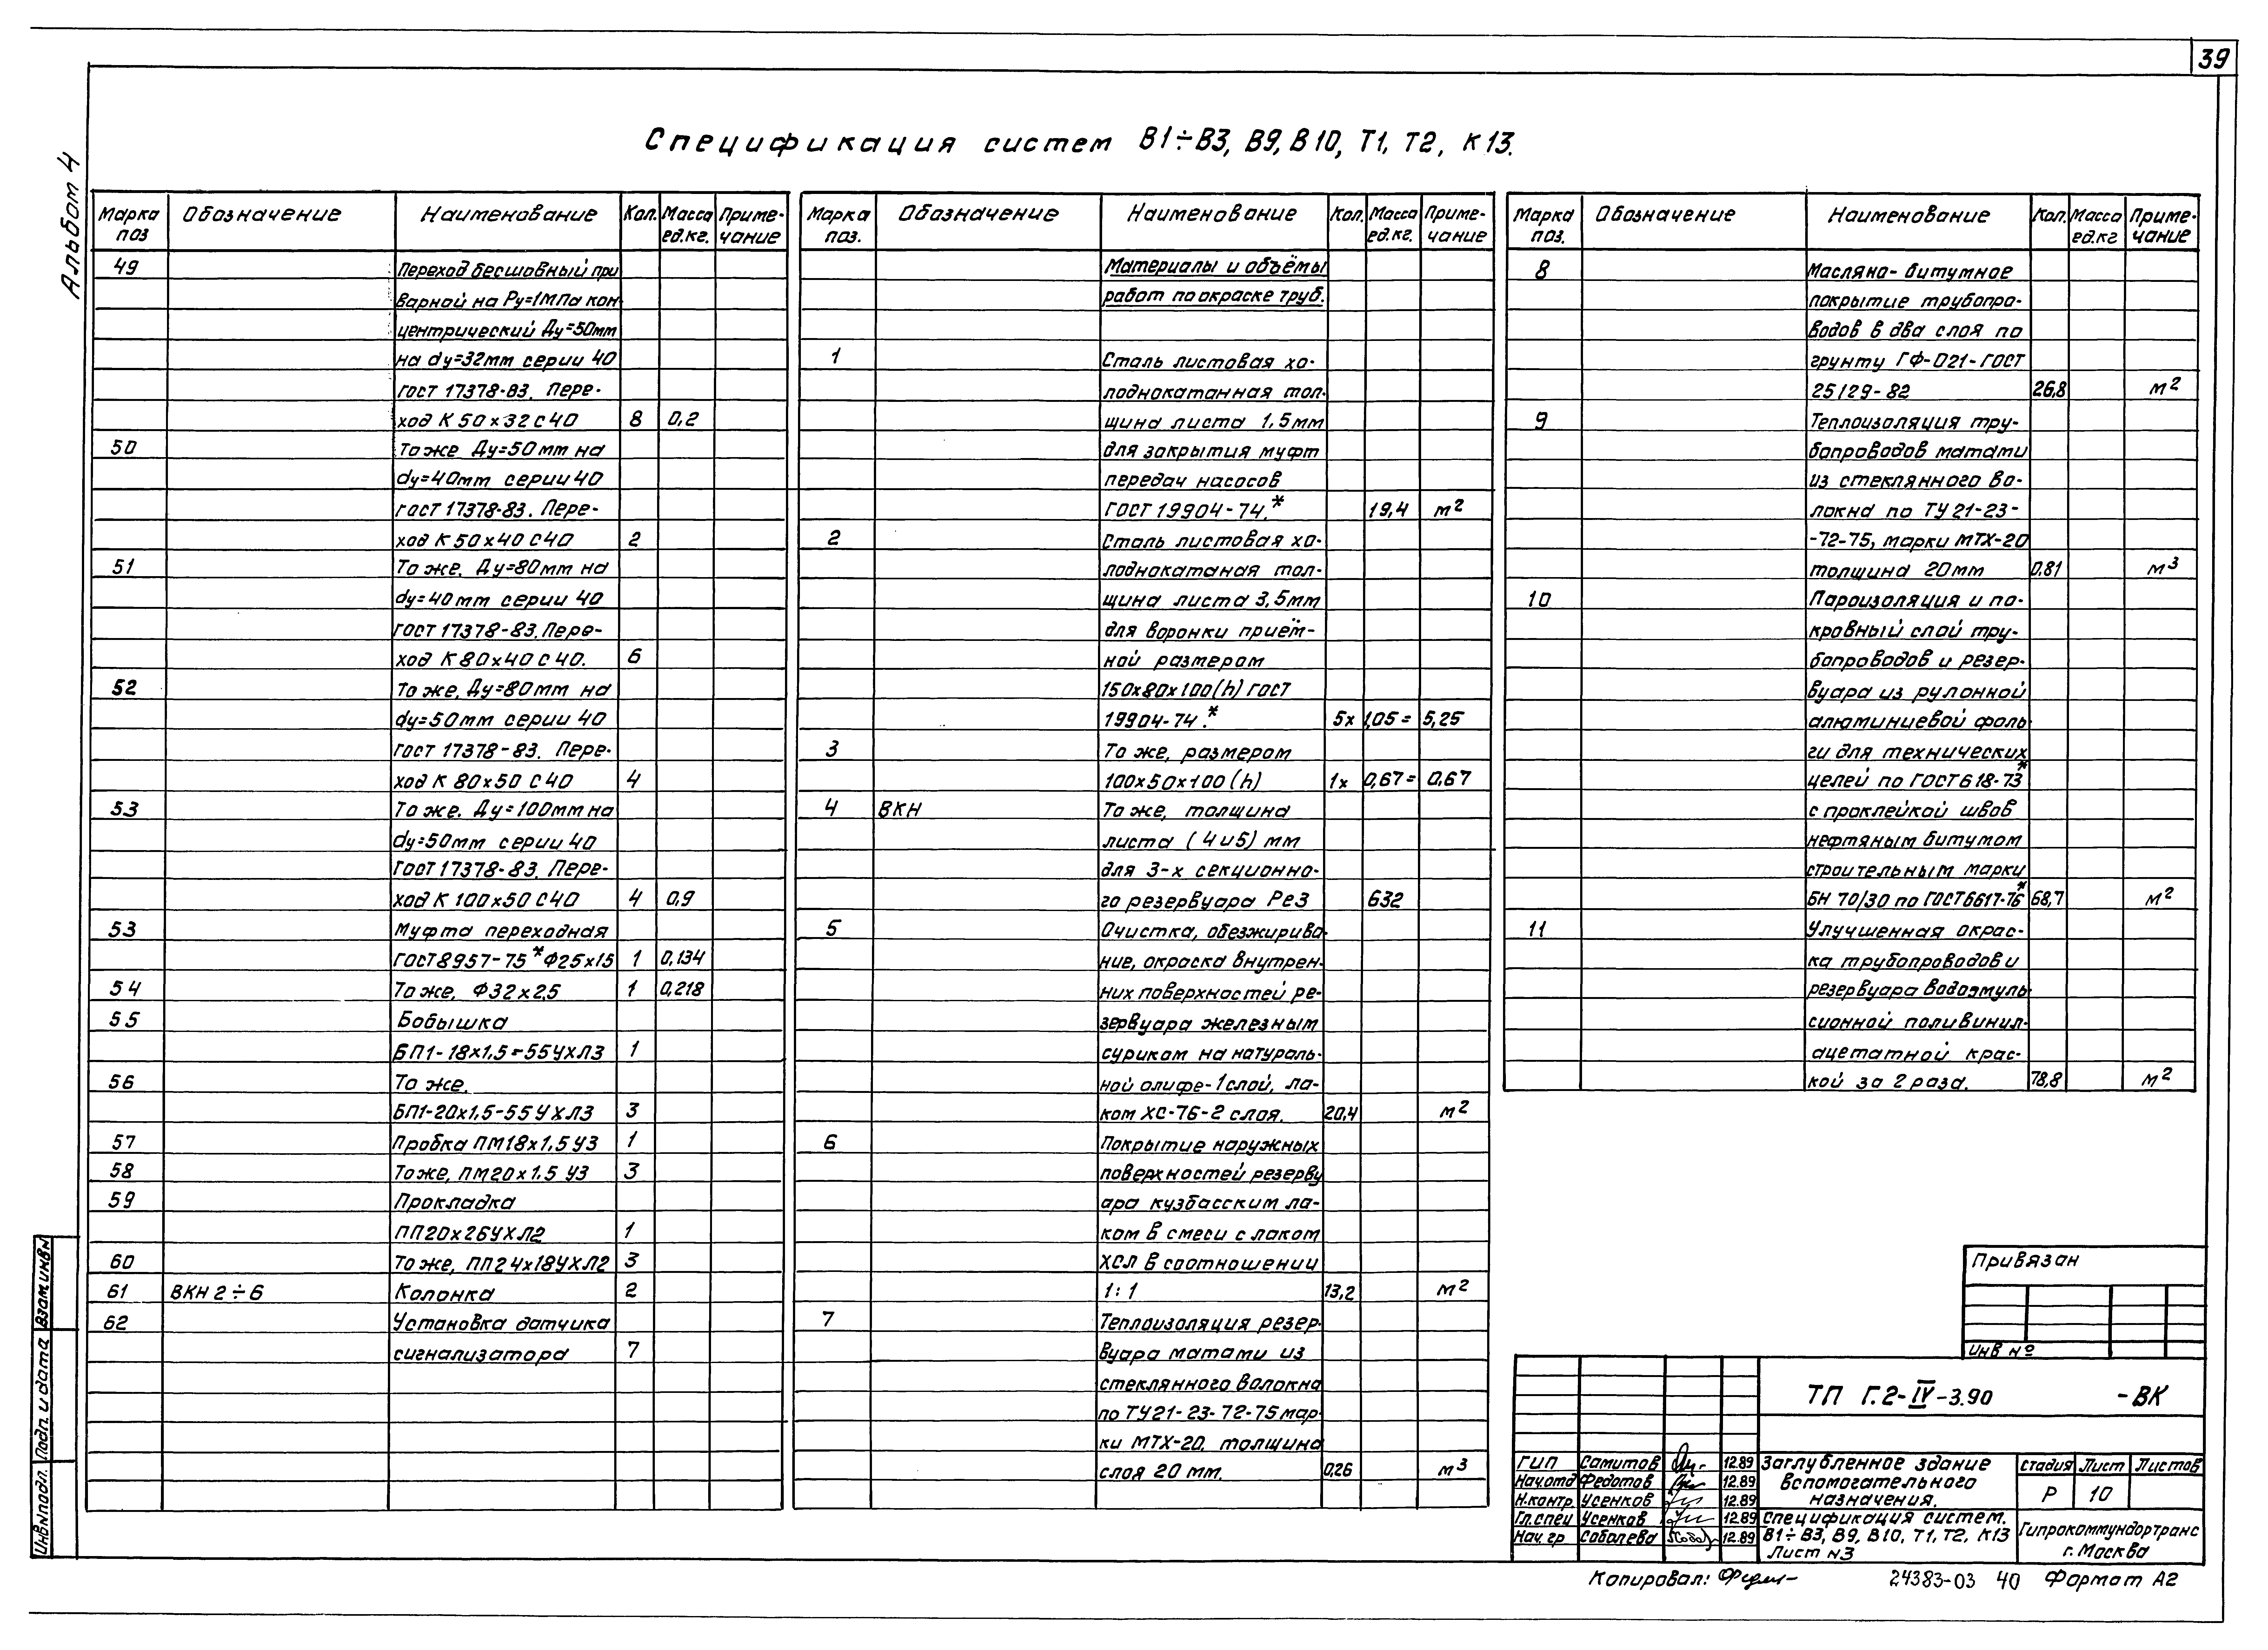 39
Альбом 4
Спецификация систем В1÷В3, В9, В10, Т1, Т2, К13.
Марка поз Обозначение Наименование Кол. Масса ед.кг. Примечание
49 Переход бесшовный при
варной на Ру=1МПа кон-
центрический Ду=50мм
на dу=32мм серии 40
ГОСТ 17378-83. Пере-
ход К 50х32 С40 8 0,2
50 То же Ду=50мм на
dу=40мм серии 40
ГОСТ 17378-83. Пере-
ход К 50х40 С40 2
51 То же. Ду=80мм на
dу=40мм серии 40
ГОСТ 17378-83. Пере-
ход К 80х40 С 40. 6
52 То же, Ду=80мм на
dу=50мм серии 40
ГОСТ 17378-83. Пере-
ход К 80х50 С40 4
53 То же. Ду=100мм на
dу=50мм серии 40
ГОСТ 17378-83. Пере-
ход К 100х50 С40 4 0,9
53 Муфта переходная
ГОСТ 8957-75* Ф25х15 1 0,134
54 То же, Ф32х25 1 0,218
55 Бобышка
БП1-18х1,5-55УХЛ3 1
56 То же.
БП1-20х1,5-55УХЛ3 3
57 Пробка ПМ18х1,5У3 1
58 То же, ПМ20х1.5 У3 3
59 Прокладка
ПП20х26УХЛ2 1
60 То же, ПП24х18УХЛ2 3
61 ВКН 2÷6 Колонка 2
62 Установка датчика
сигнализатора 7
Марка поз. Обозначение Наименование Кол. Масса ед.кг. Примечание
Материалы и объёмы
работ по окраске труб.
1 Сталь листовая хо-
лоднокатанная тол-
щина листа 1,5мм
для закрытия муфт
передач насосов
ГОСТ 19904-74.* 19,4 м2
2 Сталь листовая хо-
лоднокатаная тол-
щина листа 3,5мм
для воронки приём-
ной размером
150х80х100(h) ГОСТ
19904-74.* 5х 1,05= 5,25
3 То же, размером
100х50х100(h) 1х 0,67= 0,67
4 ВКН То же, толщина
листа (4и5) мм
для 3-х секционно-
го резервуара Ре3 632
5 Очистка, обезжирива-
ние, окраска внутрен-
них поверхностей ре-
зервуара железным
суриком на натураль-
ной олифе-1слой, ла-
ком ХС-76-2 слоя. 20,4 м2
6 Покрытие наружных
поверхностей резерву
ара кузбасским ла-
ком в смеси с лаком
ХСЛ в соотношении
1:1 13,2 м2
7 Теплоизоляция резер-
вуара матами из
стеклянного волокна
по ТУ21-23-72-75 мар-
ки МТХ-20, толщина
слоя 20 мм. 0,26 м3
Марка поз. Обозначение Наименование Кол. Масса ед.кг Примечание
8 Масляно-битумное
покрытие трубопро-
водов в два слоя по
грунту ГФ-021-ГОСТ
25129-82 26,8 м2
9 Теплоизоляция тру-
бопроводов матами
из стеклянного во-
локна по ТУ 21-23-
-72-75, марки МТХ-20
толщина 20мм 0,81 м3
10 Пароизоляция и по-
кровный слой тру-
бопроводов и резер-
вуара из рулонной
алюминиевой фоль-
ги для технических
целей по ГОСТ 618-73*
с проклейкой швов
нефтяным битумом
строительным марки
БН 70/30 по ГОСТ 6617-76* 68,7 м2
11 Улучшенная окрас-
ка трубопроводов и
резервуара водоэмуль-
сионной поливинил-
ацетатной крас-
кой за 2 раза. 78,8 м2
Привязан
инв №
ТП Г.2-IV-3.90 -ВК
ГИП Самитов 12.89
Нач.отд Федотов 12.89
Н.контр. Усенков 12.89
Гл.спец Усенков 12.89
Нач.гр Соболева 12.89
Заглубленное здание
вспомогательного
назначения.
Стадия Лист Листов
Р 10
Спецификация систем.
В1÷В3, В9, В10, Т1, Т2, К13
Лист №3
Гипрокоммундортранс
г. Москва
Копировал:
24383-03 40 Формат А2
Инв№подл. Подп. и дата Взам.инв№